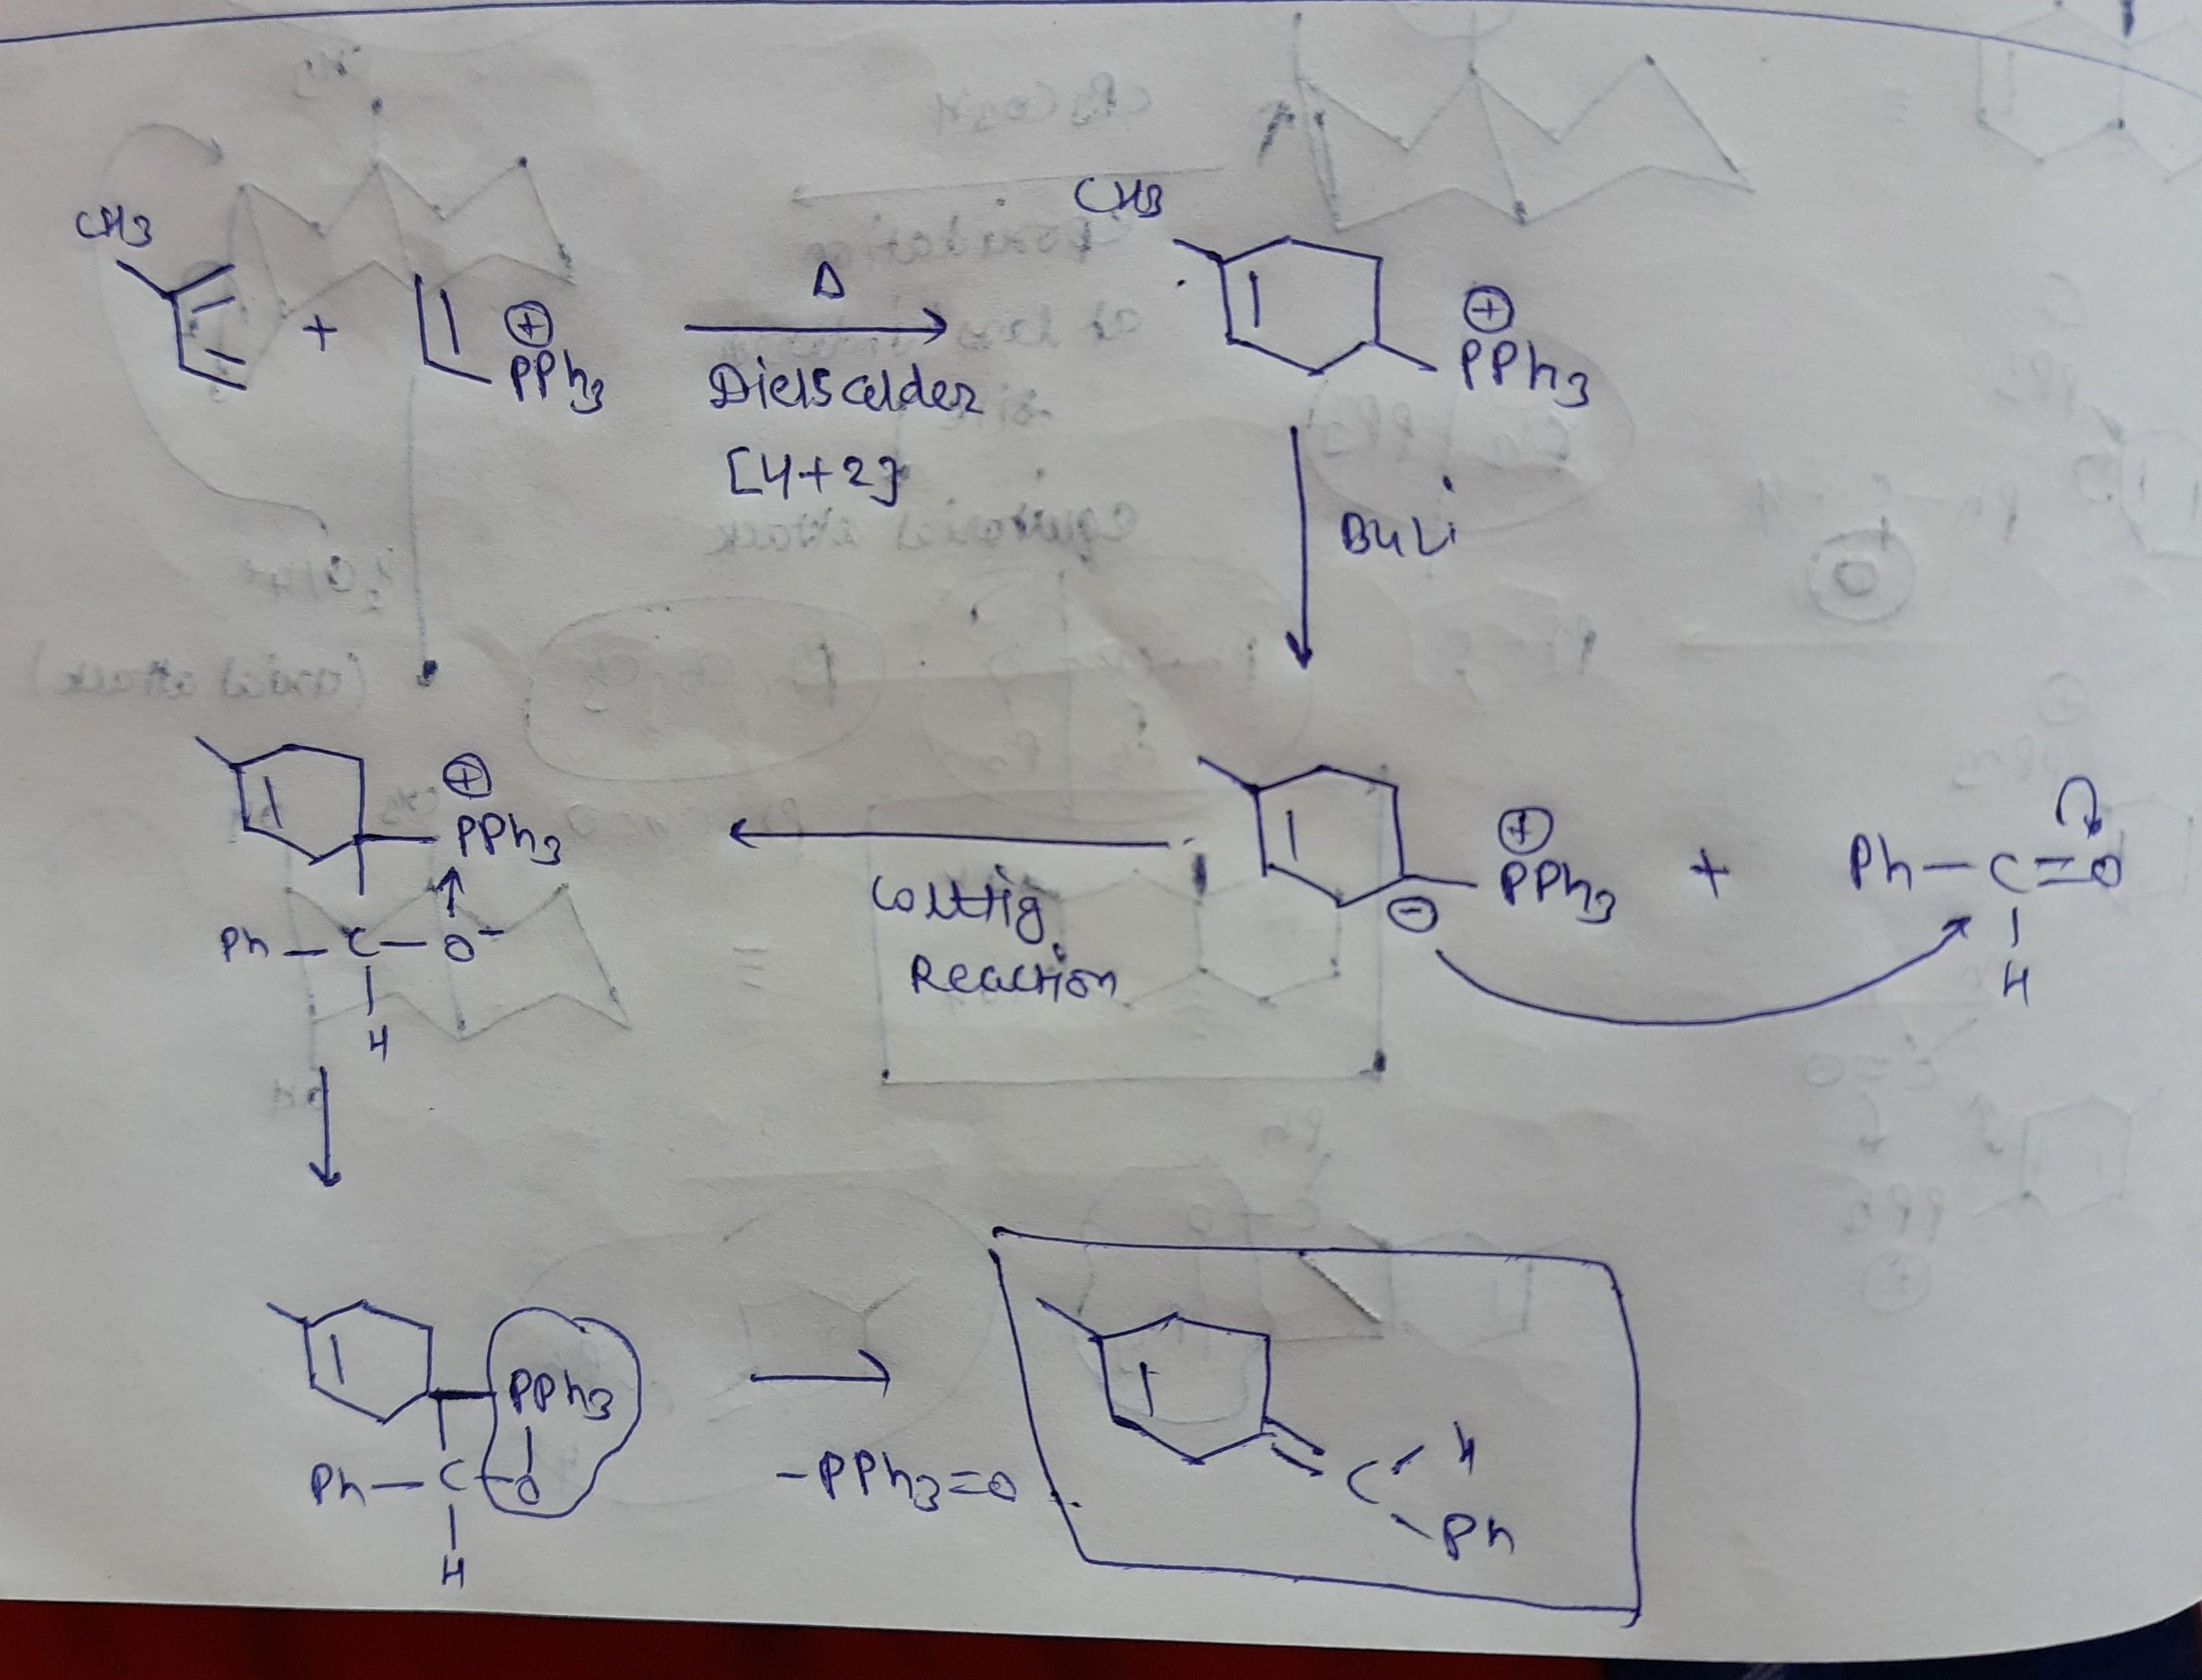 CH3
+
⊕
PPh3
Δ
Diels alder
[4+2]
CH3
⊕
PPh3
BuLi
⊕
PPh3
⊖
+
Ph-C=O
H
Wittig
Reaction
⊕
PPh3
Ph-C-O-
H
PPh3
Ph-C-O
H
-PPh3=O
C
H
Ph